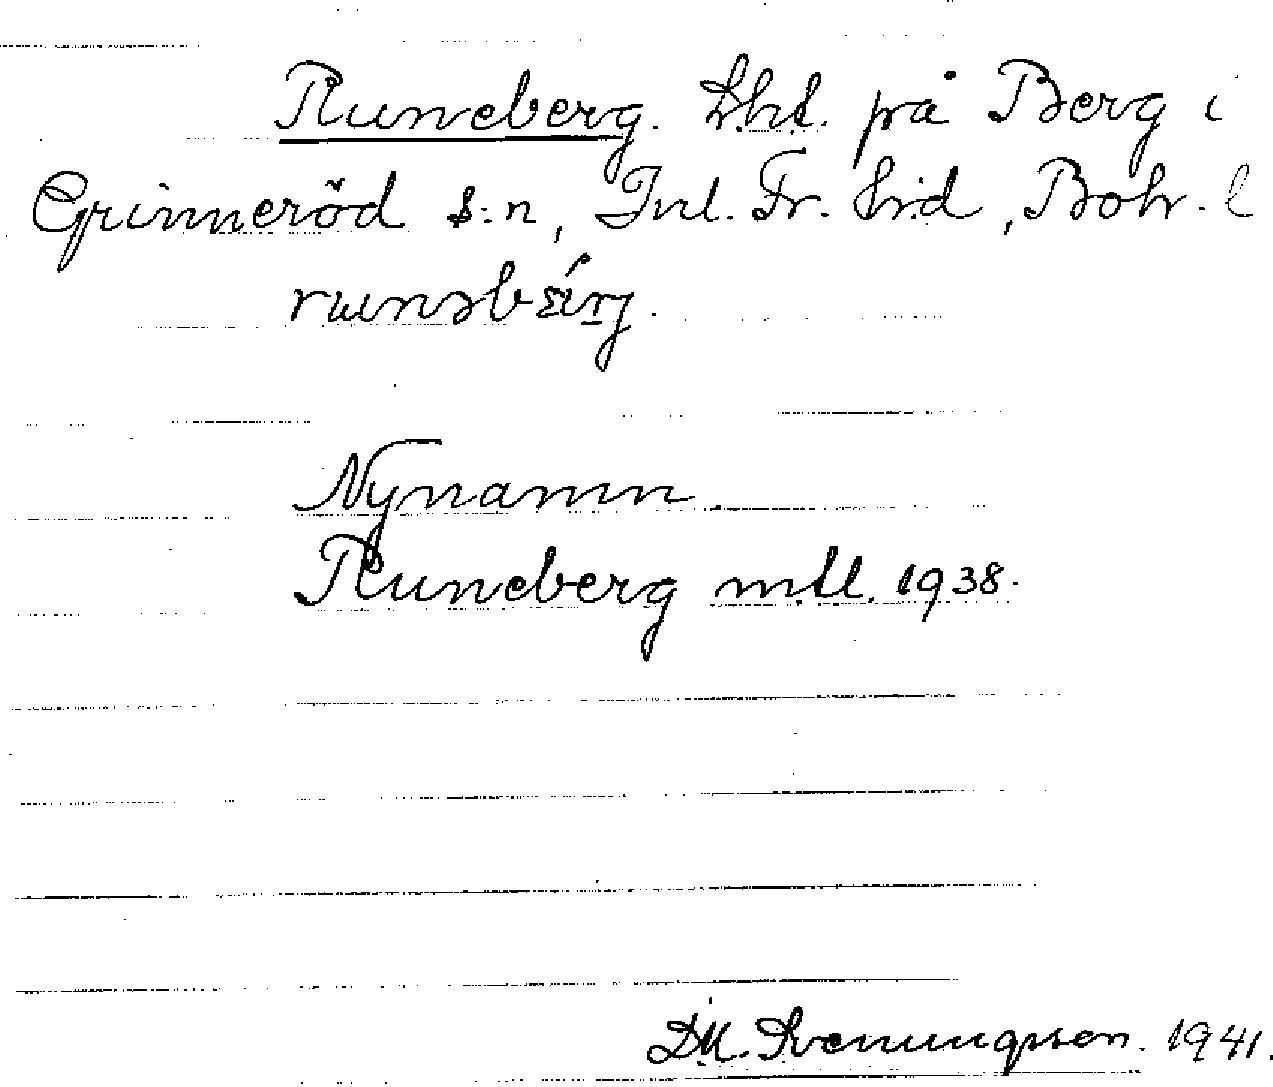 Runeberg. Lht. på Berg i
Grinneröd s:n, Inl. Fr. hrd, Boh. l
Nynamn.
Runeberg mtl. 1938.
D.M. Svenungsson. 1941.